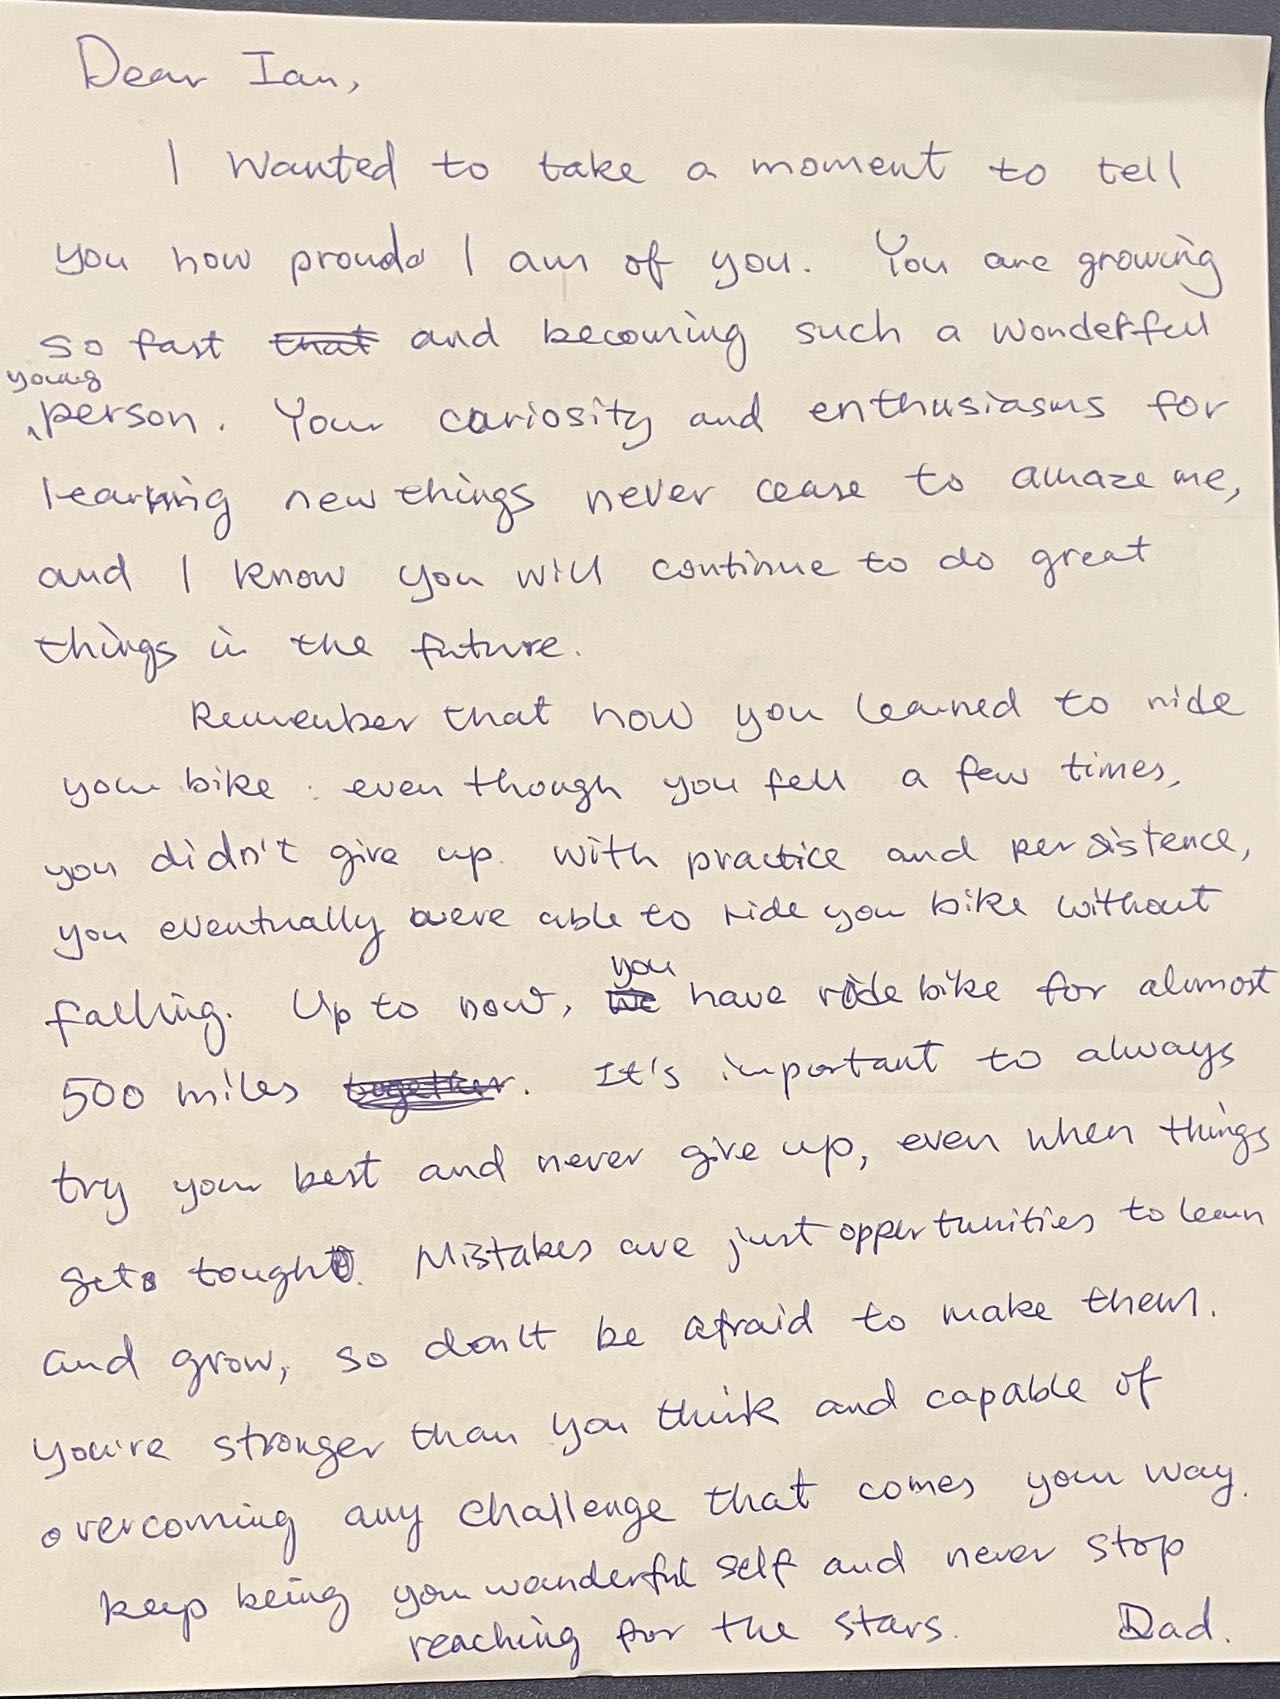 Dear Ian,
I wanted to take a moment to tell
you how proud I am of you. You are growing
so fast that and becoming such a wonderful
young
person. Your curiosity and enthusiasms for
learning new things never cease to amaze me,
and I know you will continue to do great
things in the future.
Remember that how you learned to ride
your bike: even though you fell a few times,
you didn't give up. With practice and persistence,
you eventually were able to ride you bike without
you
falling. Up to now, we have ride bike for almost
500 miles together. It's important to always
try your best and never give up, even when things
gets tought. Mistakes are just opportunities to learn
and grow, so don't be afraid to make them.
you're stronger than you think and capable of
overcoming any challenge that comes your way.
keep being your wonderful self and never stop
reaching for the stars. Dad.